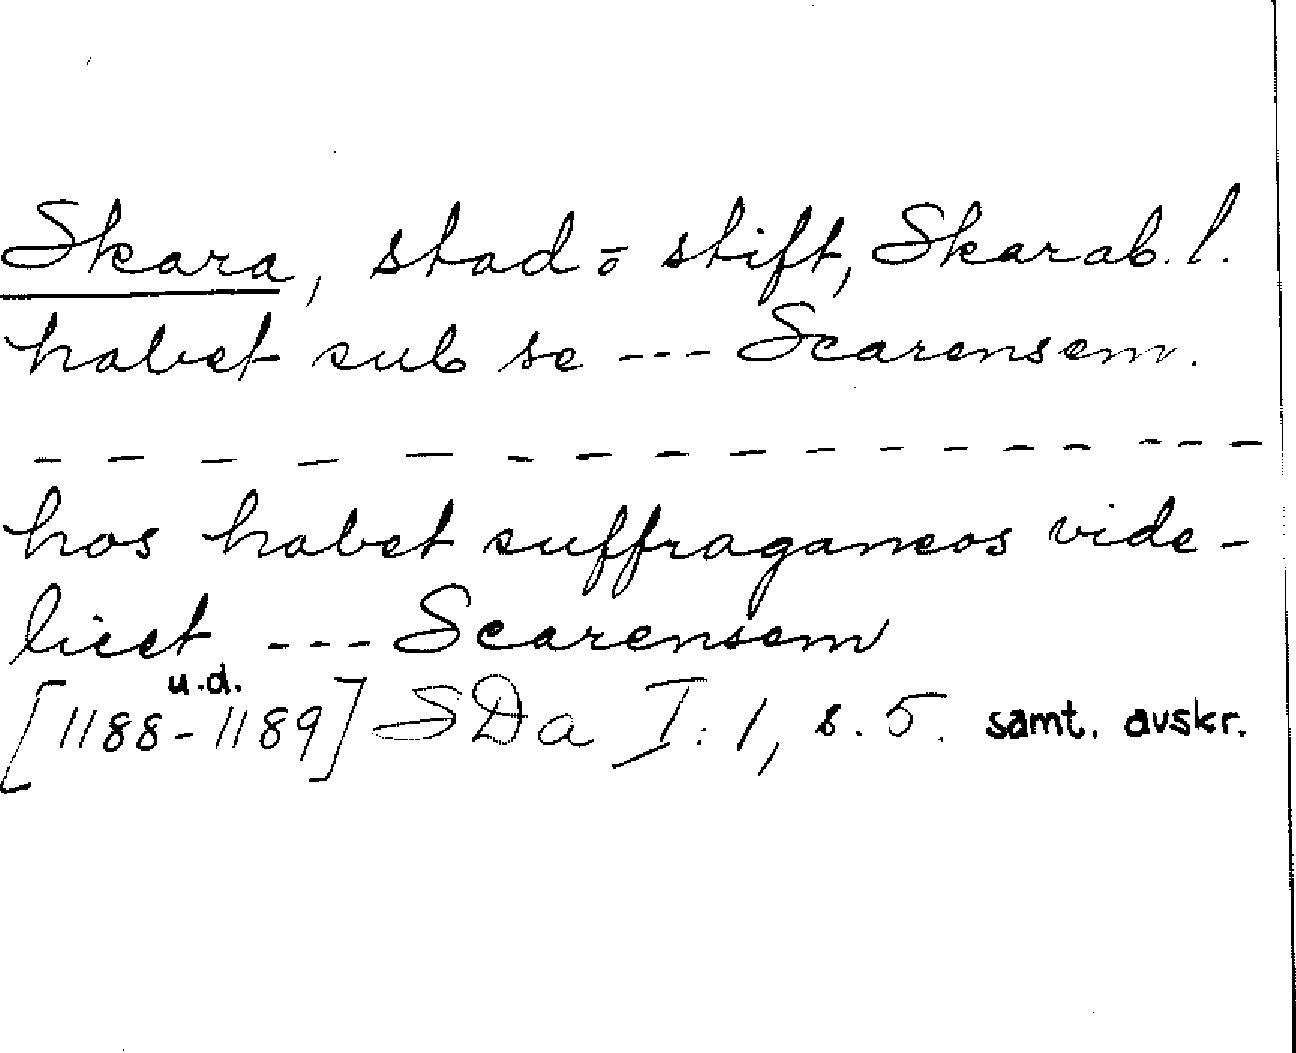 Skara, stad o stift, Skarab. l.
habet sub se --- Scarensem.
- - - - - - - - - - - - - - - - -
hos habet suffraganeos vide-
licet --- Scarensem
u.d.
[1188-1189] SDa I:1, s. 5. samt. avskr.